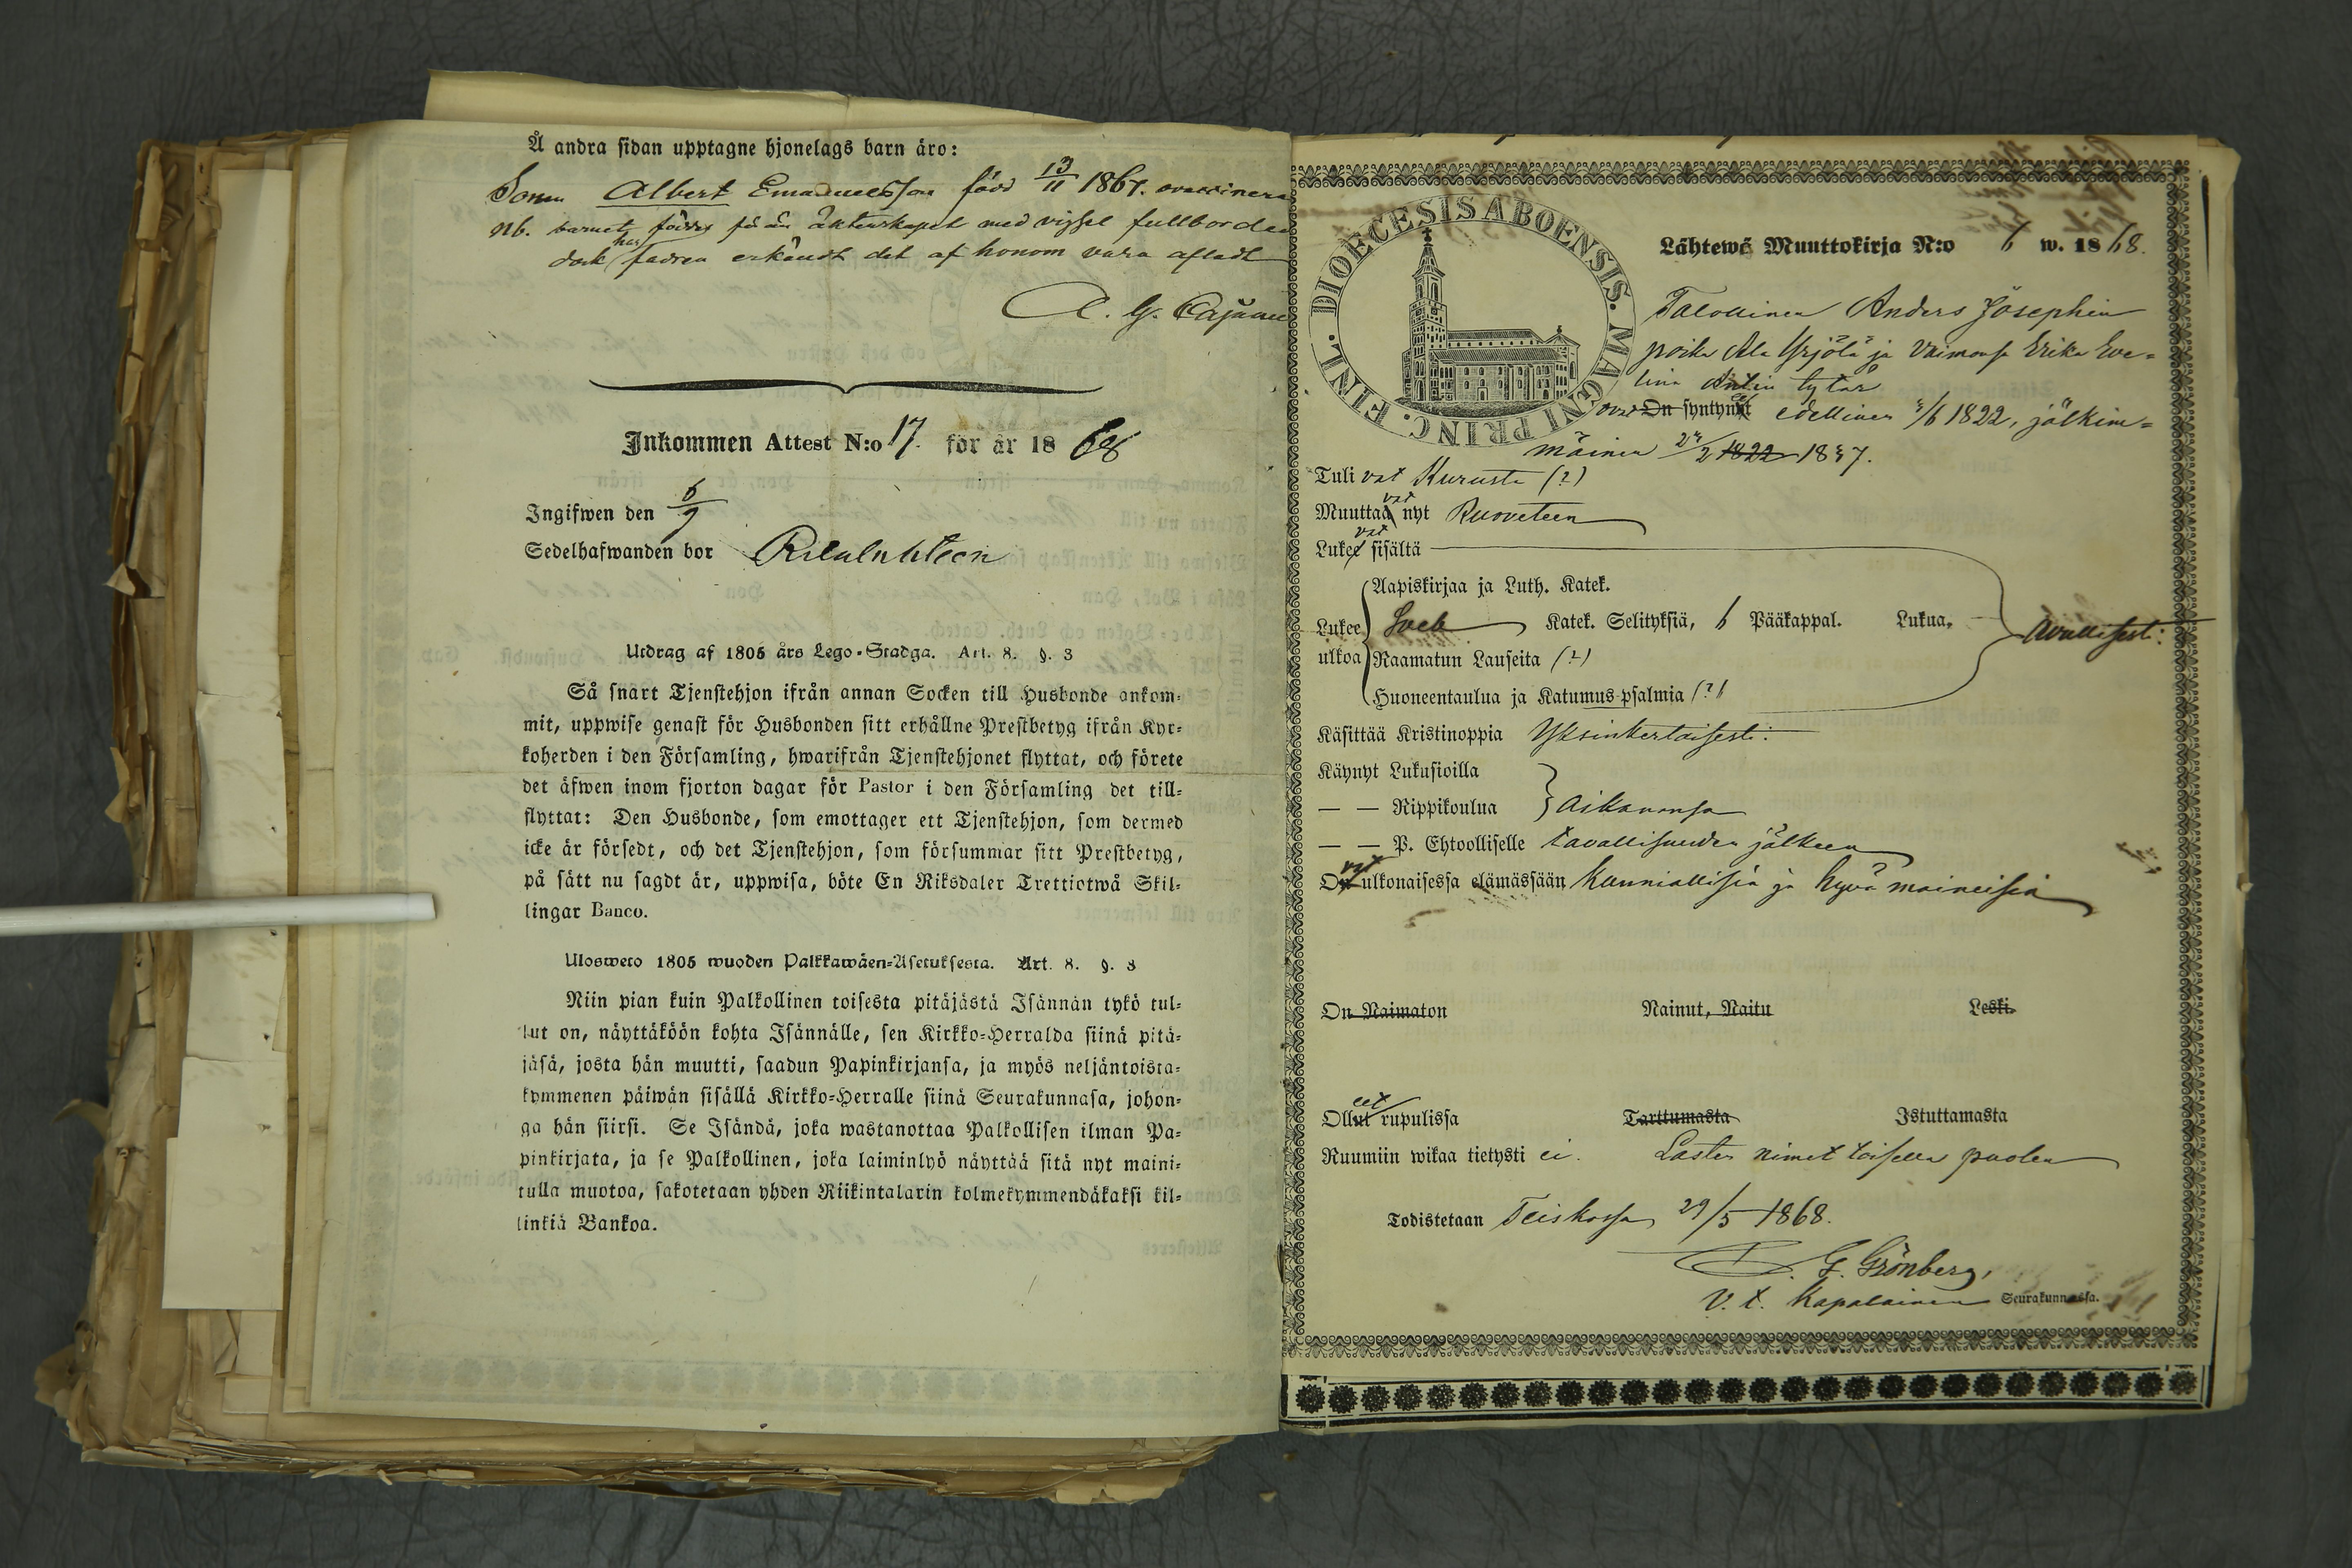 Å andra sidan upptagne hjonelags barn äro:
Sonen Albert Emanuelsson född 13/11 1867. ovaccinera
Nb. barnet föddes för än äktenskapet med vigsel fullbordad
dock har fadren erkändt det af honom vara afladt
A. G. Cajanu
Inkommen Attest N:o 17. för år 18 68
Ingifwen den 6/7
Sedelhafwanden bor
Utdrag af 1805 års Lego-Stadga. Art. 8. §. 3
Så snart Tjenstehjon ifrån annan Socken till Husbonde ankom-
mit, uppwise genast för Husbonden sitt erhållne Prestbetyg ifrån Kyr-
koherden i den Församling, hwarifrån Tjenstehjonet flyttat, och förete
det äfwen inom fjorton dagar för Pastor i den Församling det till-
flyttat: Den Husbonde, som emottager ett Tjenstehjon, som dermed
icke är försedt, och det Tjenstehjon, som försummar sitt Prestbetyg,
på sätt nu sagdt är, uppwisa, böte En Riksdaler Trettiotwå Skil-
lingar Banco.
Ulosweto 1805 wuoden Palkkawäen-Asetuksesta. Art. 8. §. 3
Niin pian kuin Palkollinen toisesta pitäjästä Isännän tykö tul-
lut on, näyttäköön kohta Isännälle, sen Kirkko-Herralda siinä pitä-
jäsä, josta hän muutti, saadun Papinkirjansa, ja myös neljäntoista-
kymmenen päiwän sisällä Kirkko-Herralle siinä Seurakunnasa, johon-
ga hän siirsi. Se Isändä, joka wastanottaa Palkollisen ilman Pa-
pinkirjata, ja se Palkollinen, joka laiminlyö näyttää sitä nyt maini-
tulla muotoa, sakotetaan yhden Riikintalarin kolmekymmendäkaksi kil-
linkiä Bankoa.
FINL. DIOECESIS ABOENSIS. MAGNI PRINC.
Lähtewä Muuttokirja N:o 6 w. 18 68.
Talollinen Anders Josephin
poika Ala Yrjölä ja Vaimonsa Erika Eve=
lina Antin tytär
ovat On syntynet edellinen 5/6 1822, jälkim=
mäinen 2 1822 1837.
Tuli vat Kurusta (?)
Muuttaa vat nyt Ruoveteen
Lukee vat sisältä
Aapiskirjaa ja Luth. Katek.
Lukee Sveb Katek. Selityksiä, 6 Pääkappal. Lukua. Avullisesti:
ulkoa Raamatun Lauseita (?)
Huoneentaulua ja Katumus-psalmia (?)
Käsittää Kristinoppia Yksinkertaisesti:
Käynyt Lukusioilla
— — Rippikoulua } aikanansa
— — P. Ehtoolliselle tavallisuuden jälkeen
On vat ulkonaisessa elämässään kunniallisia ja hyvä maineisia
On Naimaton Nainut, Naitu Leski.
Ollut eet rupulissa Tarttumasta Istuttamasta
Ruumiin wikaa tietysti ei. Lasten nimet toisella puolen
Todistetaan Teiskossa 29/5 1868.
G. Grönberg,
V. t. Kapalainen Seurakunnassa.